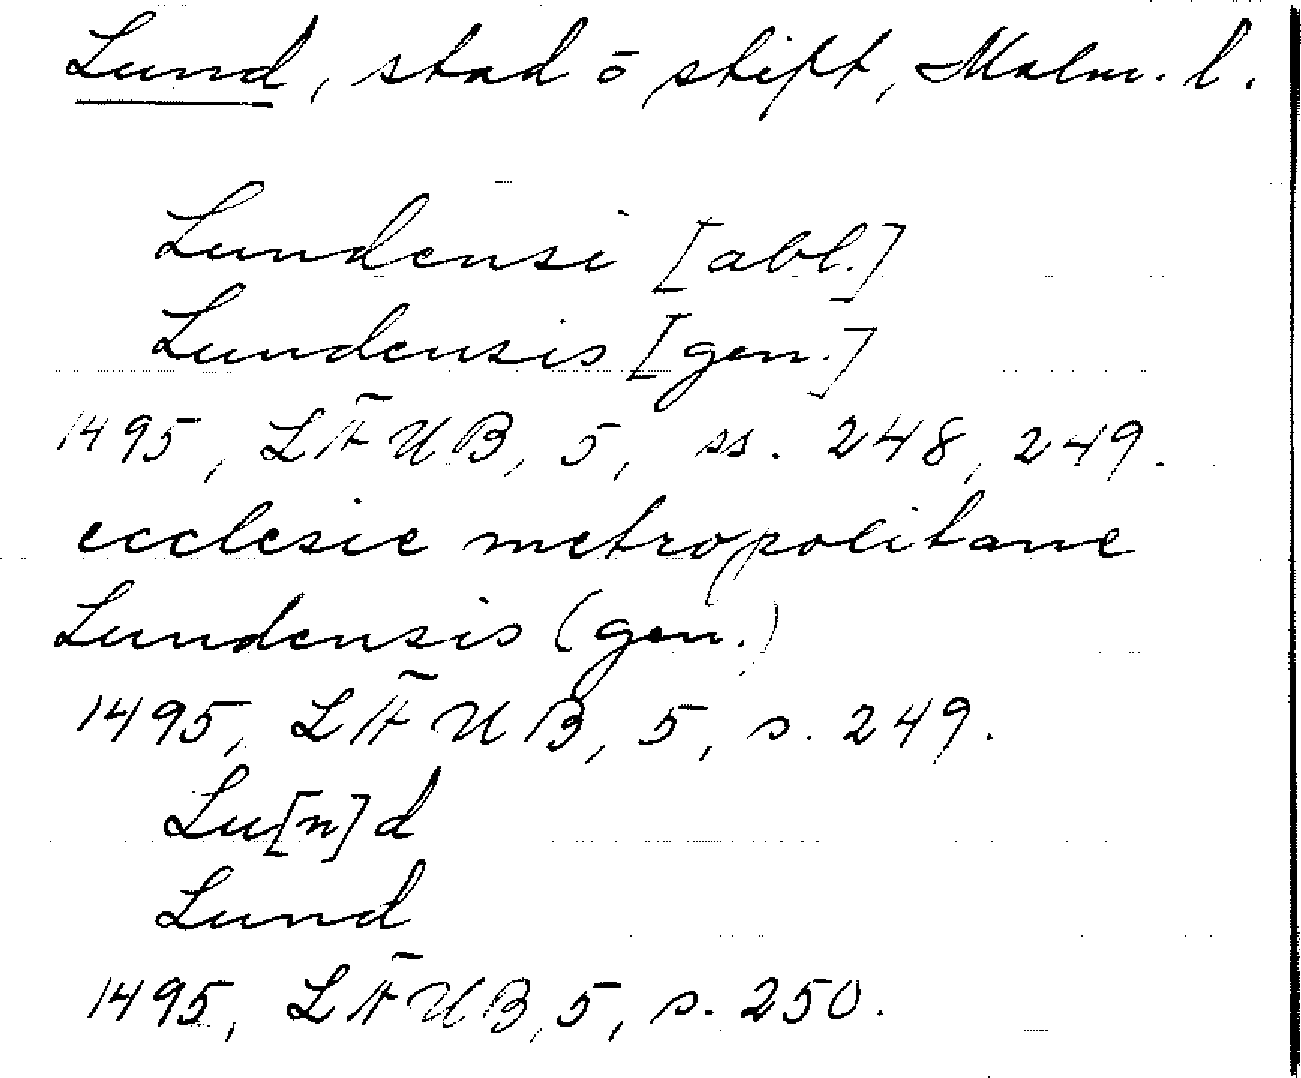 Lund, stad o stift, Malm. l.
Lundensi [abl.]
Lundensis [gen.]
1495, LÄUB, 5, ss. 248, 249.
ecclesie metropolitane
Lundensis (gen.)
1495, LÄUB, 5, s. 249.
Lu[n]d
Lund
1495, LÄUB, 5, s. 250.